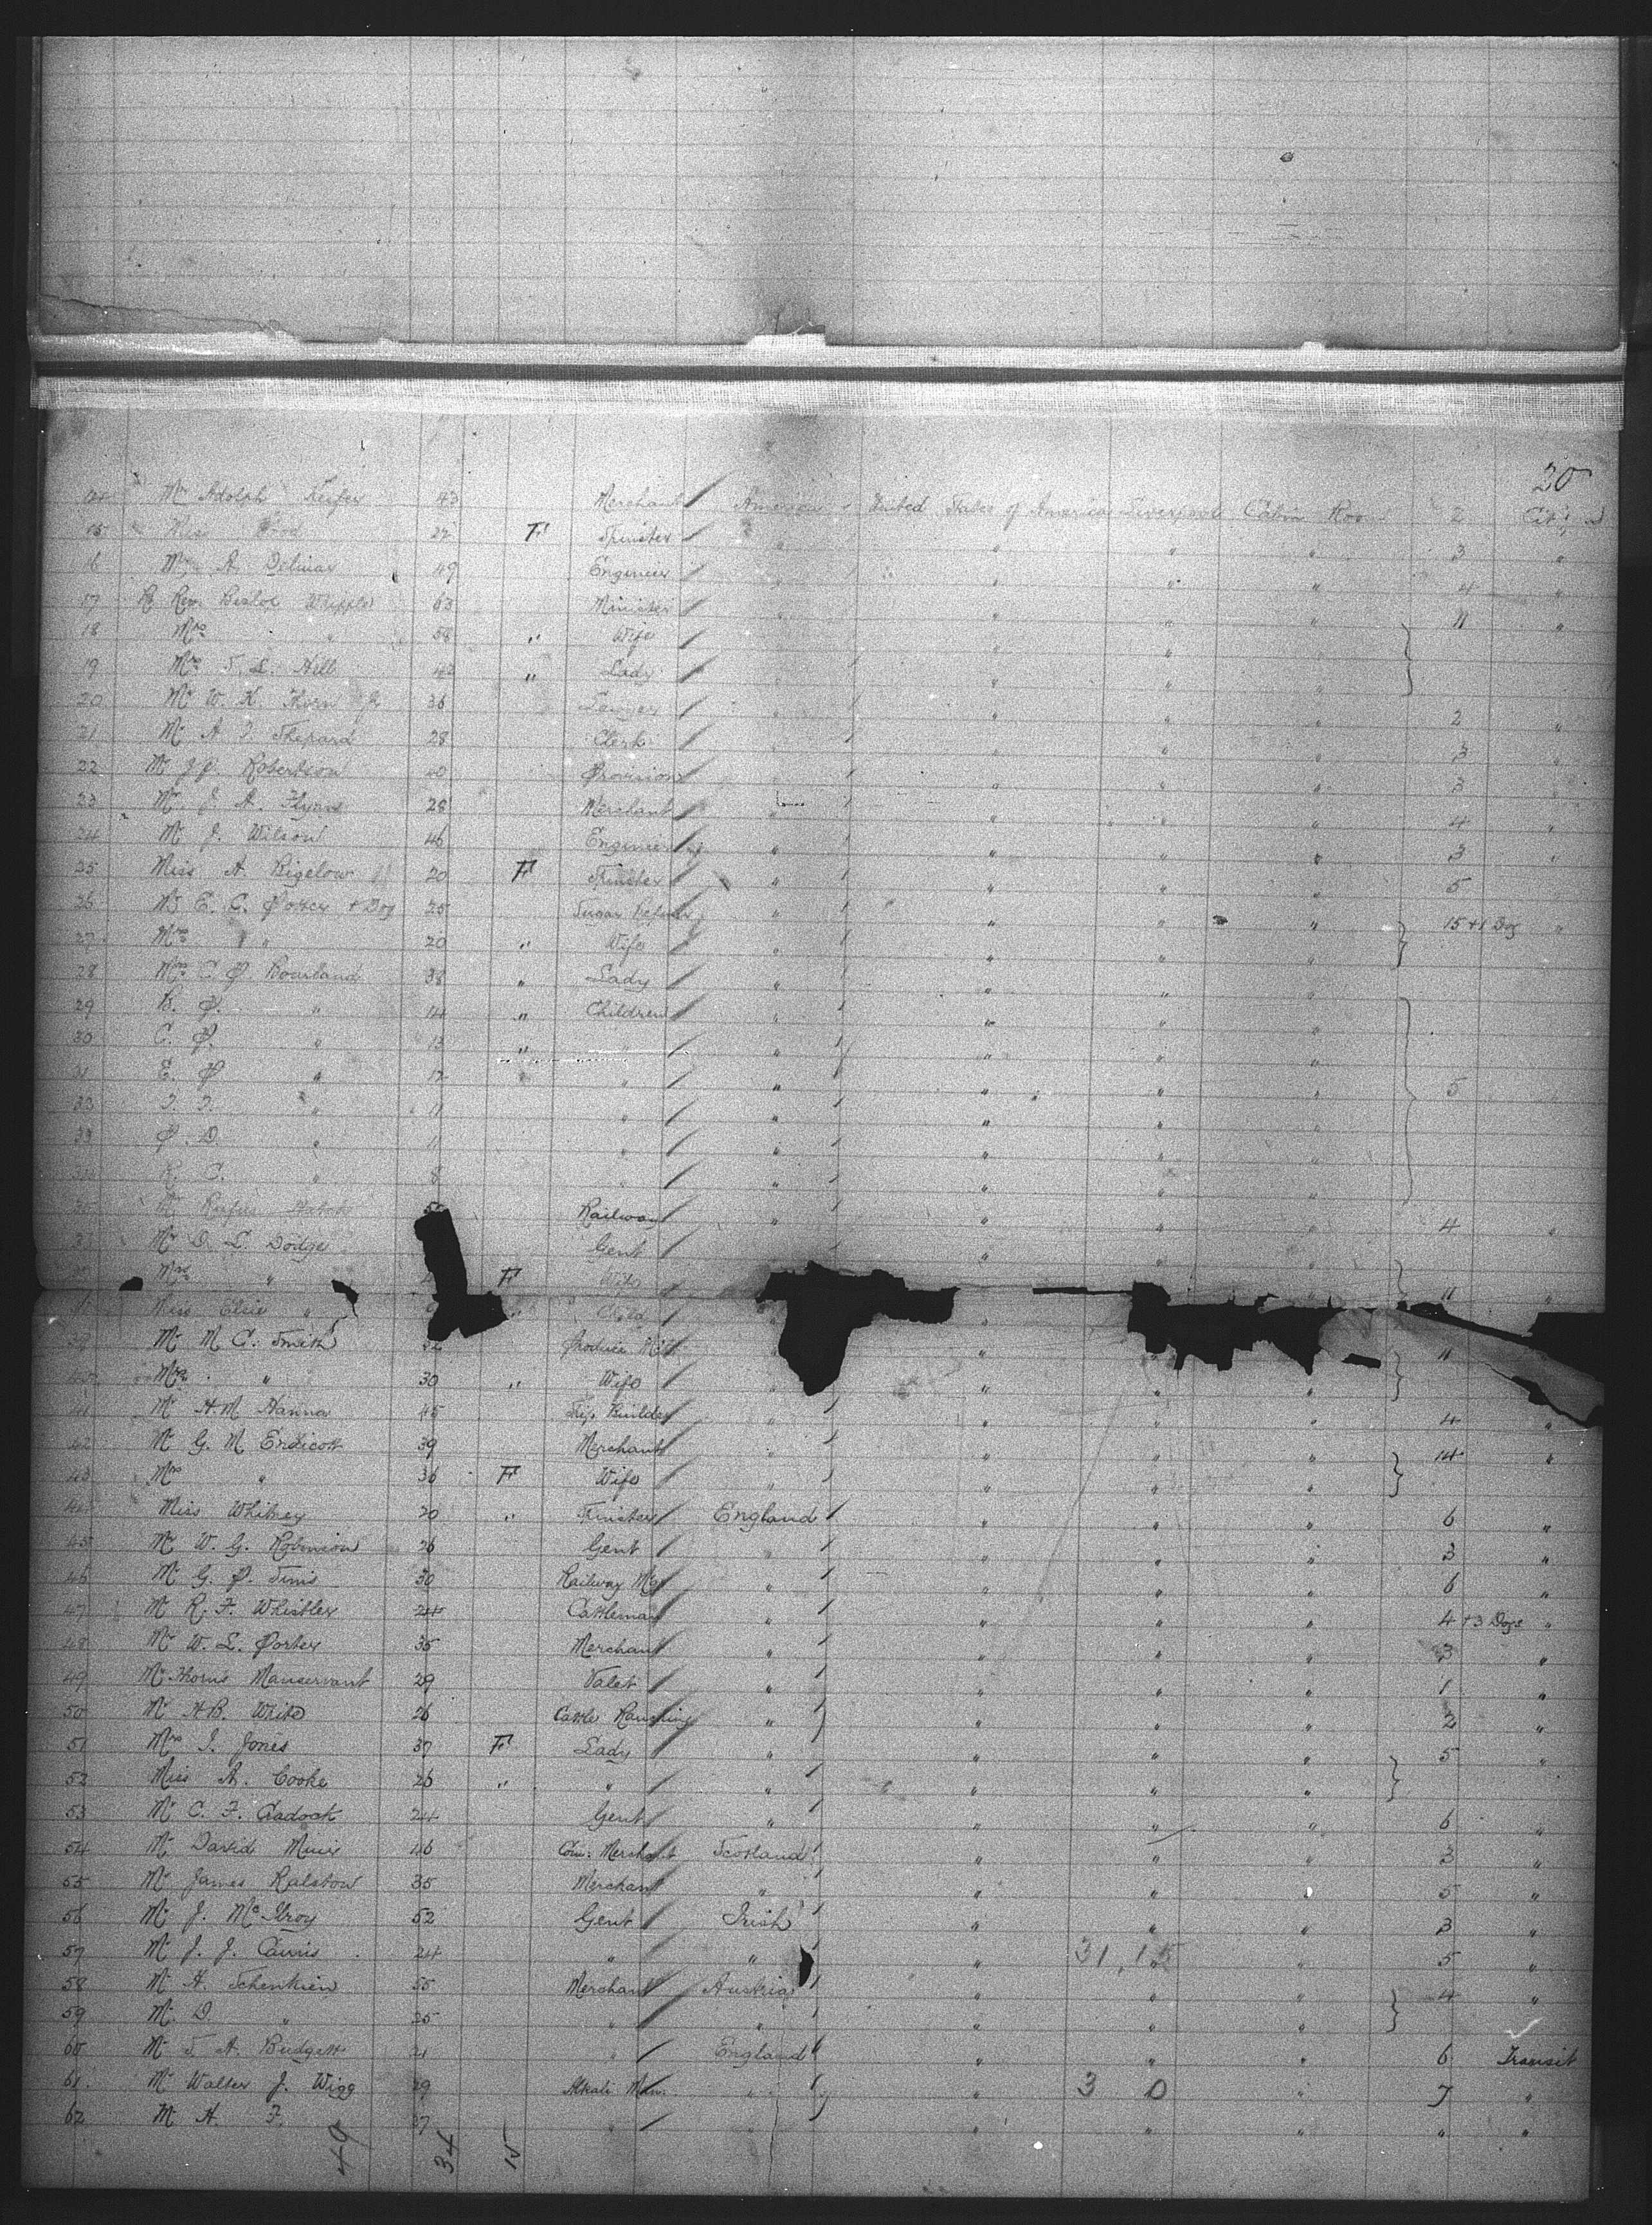 20
14 Mr Adolph Keifer 43 Merchant / American / United States of America Liverpool Cabin Room 2
15 Miss Wood 22 F Spinster / " " " " 3 "
16 Mr A. Delmar 49 Engineer / " " " " 4 "
17 Rt Rev. Bishop Whipple 63 Minister / " " " " 11 "
18 Mrs " 58 " Wife / " " " "
19 Mrs T. L. Hill " Lady / " " " "
20 Mr W. K. Thorn Jr 36 Lawyer / " " " " 2 "
21 Mr A. Shepard 28 Clerk / " " " " 3 "
22 Mr J. Robertson 40 Provision / " " " " 3
23 Mr J. A. Flynn 28 Merchant / " " " " 4 "
24 Mr J. Wilson 46 Engineering / " " " " 3 "
25 Miss A. Bigelow 20 F Spinster / " " " " 5
26 Mr E. C. Potter + Dog 25 Sugar Refiner / " " " " 15 + 1 Dog "
27 Mrs " 20 " Wife / " " " "
28 Mrs C. P. Bourland 38 " Lady / " " " "
29 B. P. " 14 " Children / " " " "
30 C. P. " 13 " " / " " " "
31 E. P. " 12 " " / " " " " 5
32 " 11 " / " " " "
33 P. D. " 11 " / " " " "
34 R. C. " 8 " / " " " "
35 Mr Rufus Railway / " " " " 4 "
36 Mr D. L. Dodge Gent / "
37 Mrs " F Wife / " 11 "
38 Miss Elsie " " Child /
39 Mr M. C. Smith 32 Produce / " " 11
40 Mrs " 30 " Wife / " " " "
41 Mr H. M. Hanna 45 Ship Builder / " " " " 4 "
42 Mr G. M. Endicott 39 Merchant / " " " " 14 "
43 Mrs " 36 F Wife / " " "
44 Miss Whitney 20 " Spinster / England / " " " 6 "
45 Mr W. G. Robinson 26 Gent / " " " " 3 "
46 Mr G. P. Tims 30 Railway Mgr / " " " " 6 "
47 Mr R. F. Whistler 24 Cattleman / " " " " 4 + 3 Dogs "
48 Mr W. L. Porter 35 Merchant / " " " " 3 "
49 Mr Thorns Manservant 29 Valet / " " " " 1 "
50 Mr H. B. White 26 Cattle Ranching / " " " " 2 "
51 Mrs I. Jones 37 F Lady / " " " " 5 "
52 Miss A. Cooke 26 " " / " " " "
53 Mr C. F. Cradock 24 Gent / " " " " 6 "
54 Mr David Muir 46 Com: Merchant Scotland / " " " 3 "
55 Mr James Ralston 35 Merchant / " " " " 5 "
56 Mr J. McIlroy 52 Gent / Irish / " " " 3 "
57 Mr J. J. 24 " / " " 31,15 " 5 "
58 Mr H. Schenkien 55 Merchant / Austria / " " " 4 "
59 Mr D. " 25 " / " " " "
60 Mr T. A. Budgett 21 " / England / " " " 6 Transit
61 Mr Walter J. Wigg 29 Alkali Man. " " 3 0 " 7 "
62 Mr H. F. " 37 " / " " " " " "
49 34 15